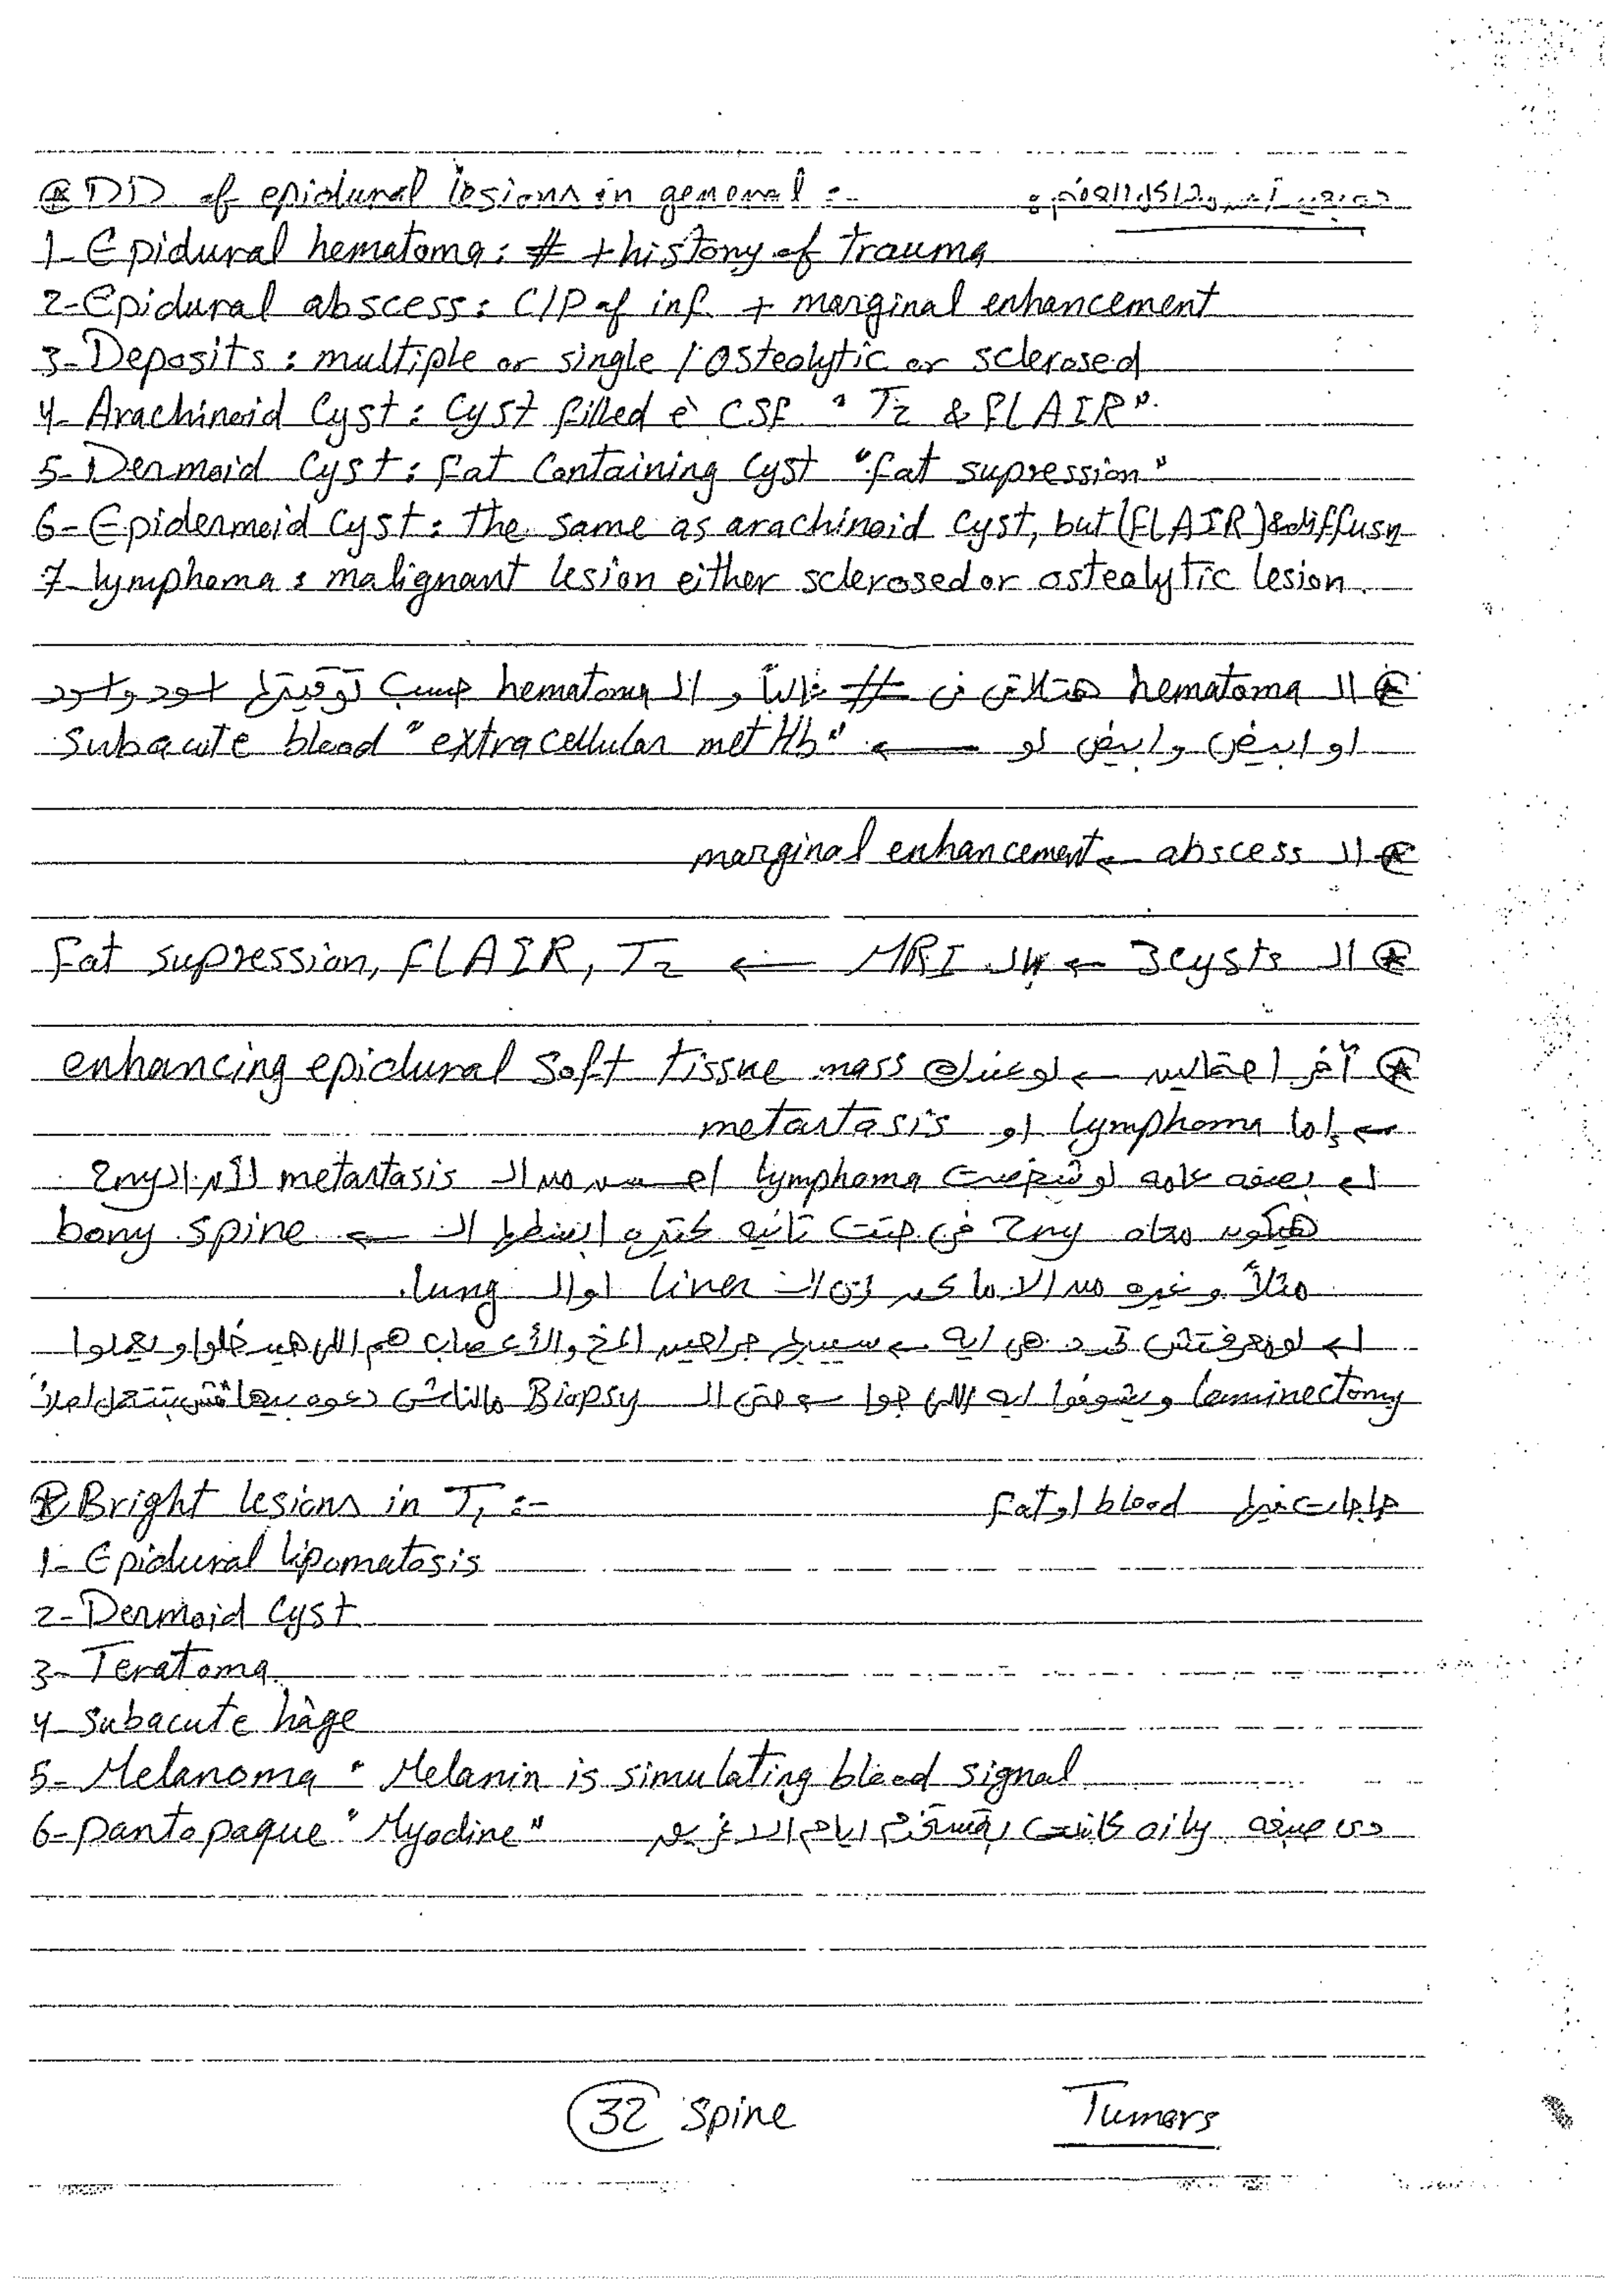 DD of epidural lesions in general :-
1- Epidural hematoma : # + history of trauma
2- Epidural abscess : C/P of inf. + marginal enhancement
3- Deposits : multiple or single / osteolytic or sclerosed
4- Arachinoid Cyst : Cyst filled è CSF "T2 & FLAIR".
5- Dermoid Cyst : Fat Containing Cyst "fat supression"
6- Epidermoid Cyst : The same as arachinoid Cyst, but (FLAIR) & diffusn
7- lymphoma : malignant lesion either sclerosed or osteolytic lesion.
ال hematoma هتلاقى فى # غالباً و ال hematoma حسب توقيتها اسود واسود
او ابيض وابيض لو ← subacute blood "extracellular met Hb"
ال abscess ← marginal enhancement
ال 3 cysts ← بال MRI ← T2 , FLAIR, Fat supression
آخر احتمالين ← لو عندك enhancing epidural soft tissue mass
← إما lymphoma او metastasis
بصفه عامه لو شخصت lymphoma احسن من ال metastasis لأن ال 2ry
هيكون معاه 2ry فى حتت تانيه كتيره ابسطها ال ← bony spine
مثلاً وغيره من الاماكن زى ال liver او ال lung.
لو معرفتش تحدد هى ايه ← سيبها جراحين المخ والأعصاب هم اللى هيدخلوا ويعملوا
laminectomy ويشوفوا ايه اللى جوا ← حتى ال Biopsy مالناش دعوه بيها مش بتتعمل اصلاً
Bright lesions in T1 :- حاجات فيها blood او fat
1- Epidural lipomatosis
2- Dermoid Cyst
3- Teratoma
4- Subacute hàge
5- Melanoma " Melanin is simulating blood signal
6- Pantopaque "Myodine" دى صبغه oily كانت بتستخدم ايام
32 Spine Tumors